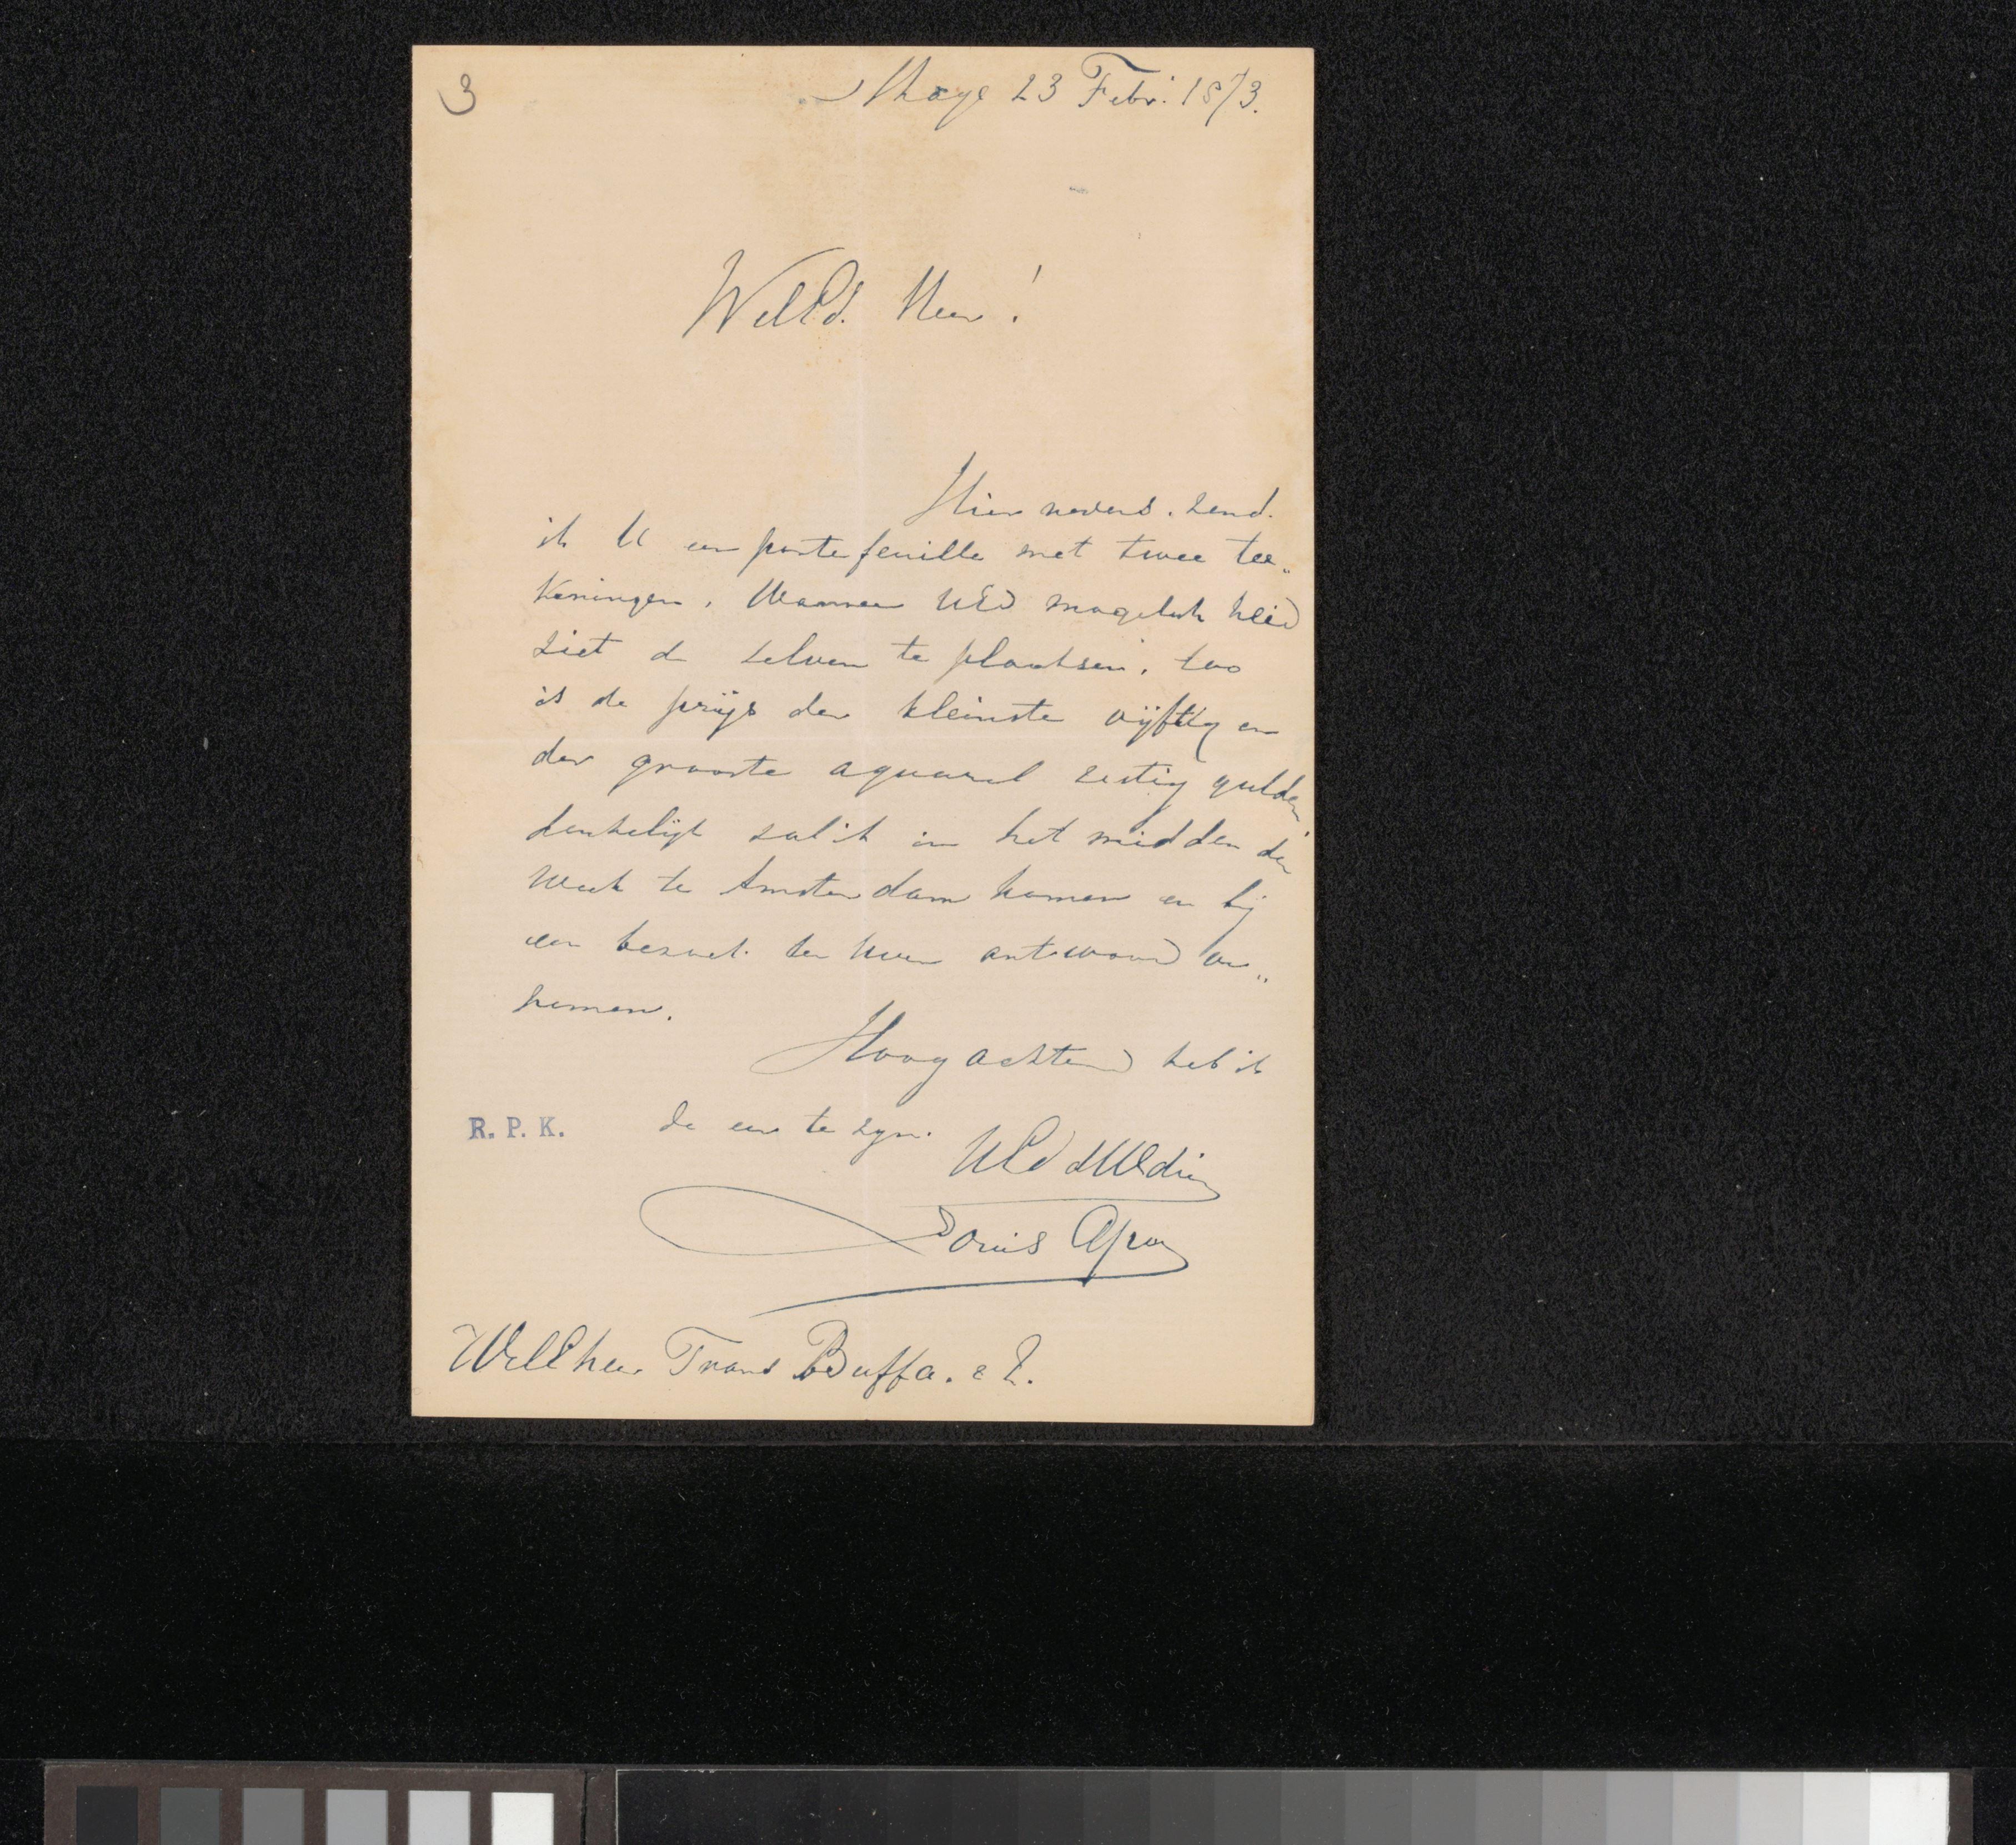 3
Hage 23 Febr. 1873.
WelEd. Heer!
Hier nevens. zend.
ik U een portefeuille met twee tee„
keningen. Wanneer UEd mogelyk heid
ziet de zelven te plaatsen. zoo
is de prijs der kleinste vijftig en
der grootste aquarel zestig gulden,
denkelijk zal ik in het midden der
week te Amsterdam komen en bij
een bezoek. ten Uwen antwoord ver„
nemen.
Hoog achtend heb ik
de eer te zyn.
R. P. K.
UEd dWDrin
Louis Apol
WelEheer Frans Buffa. & Z.